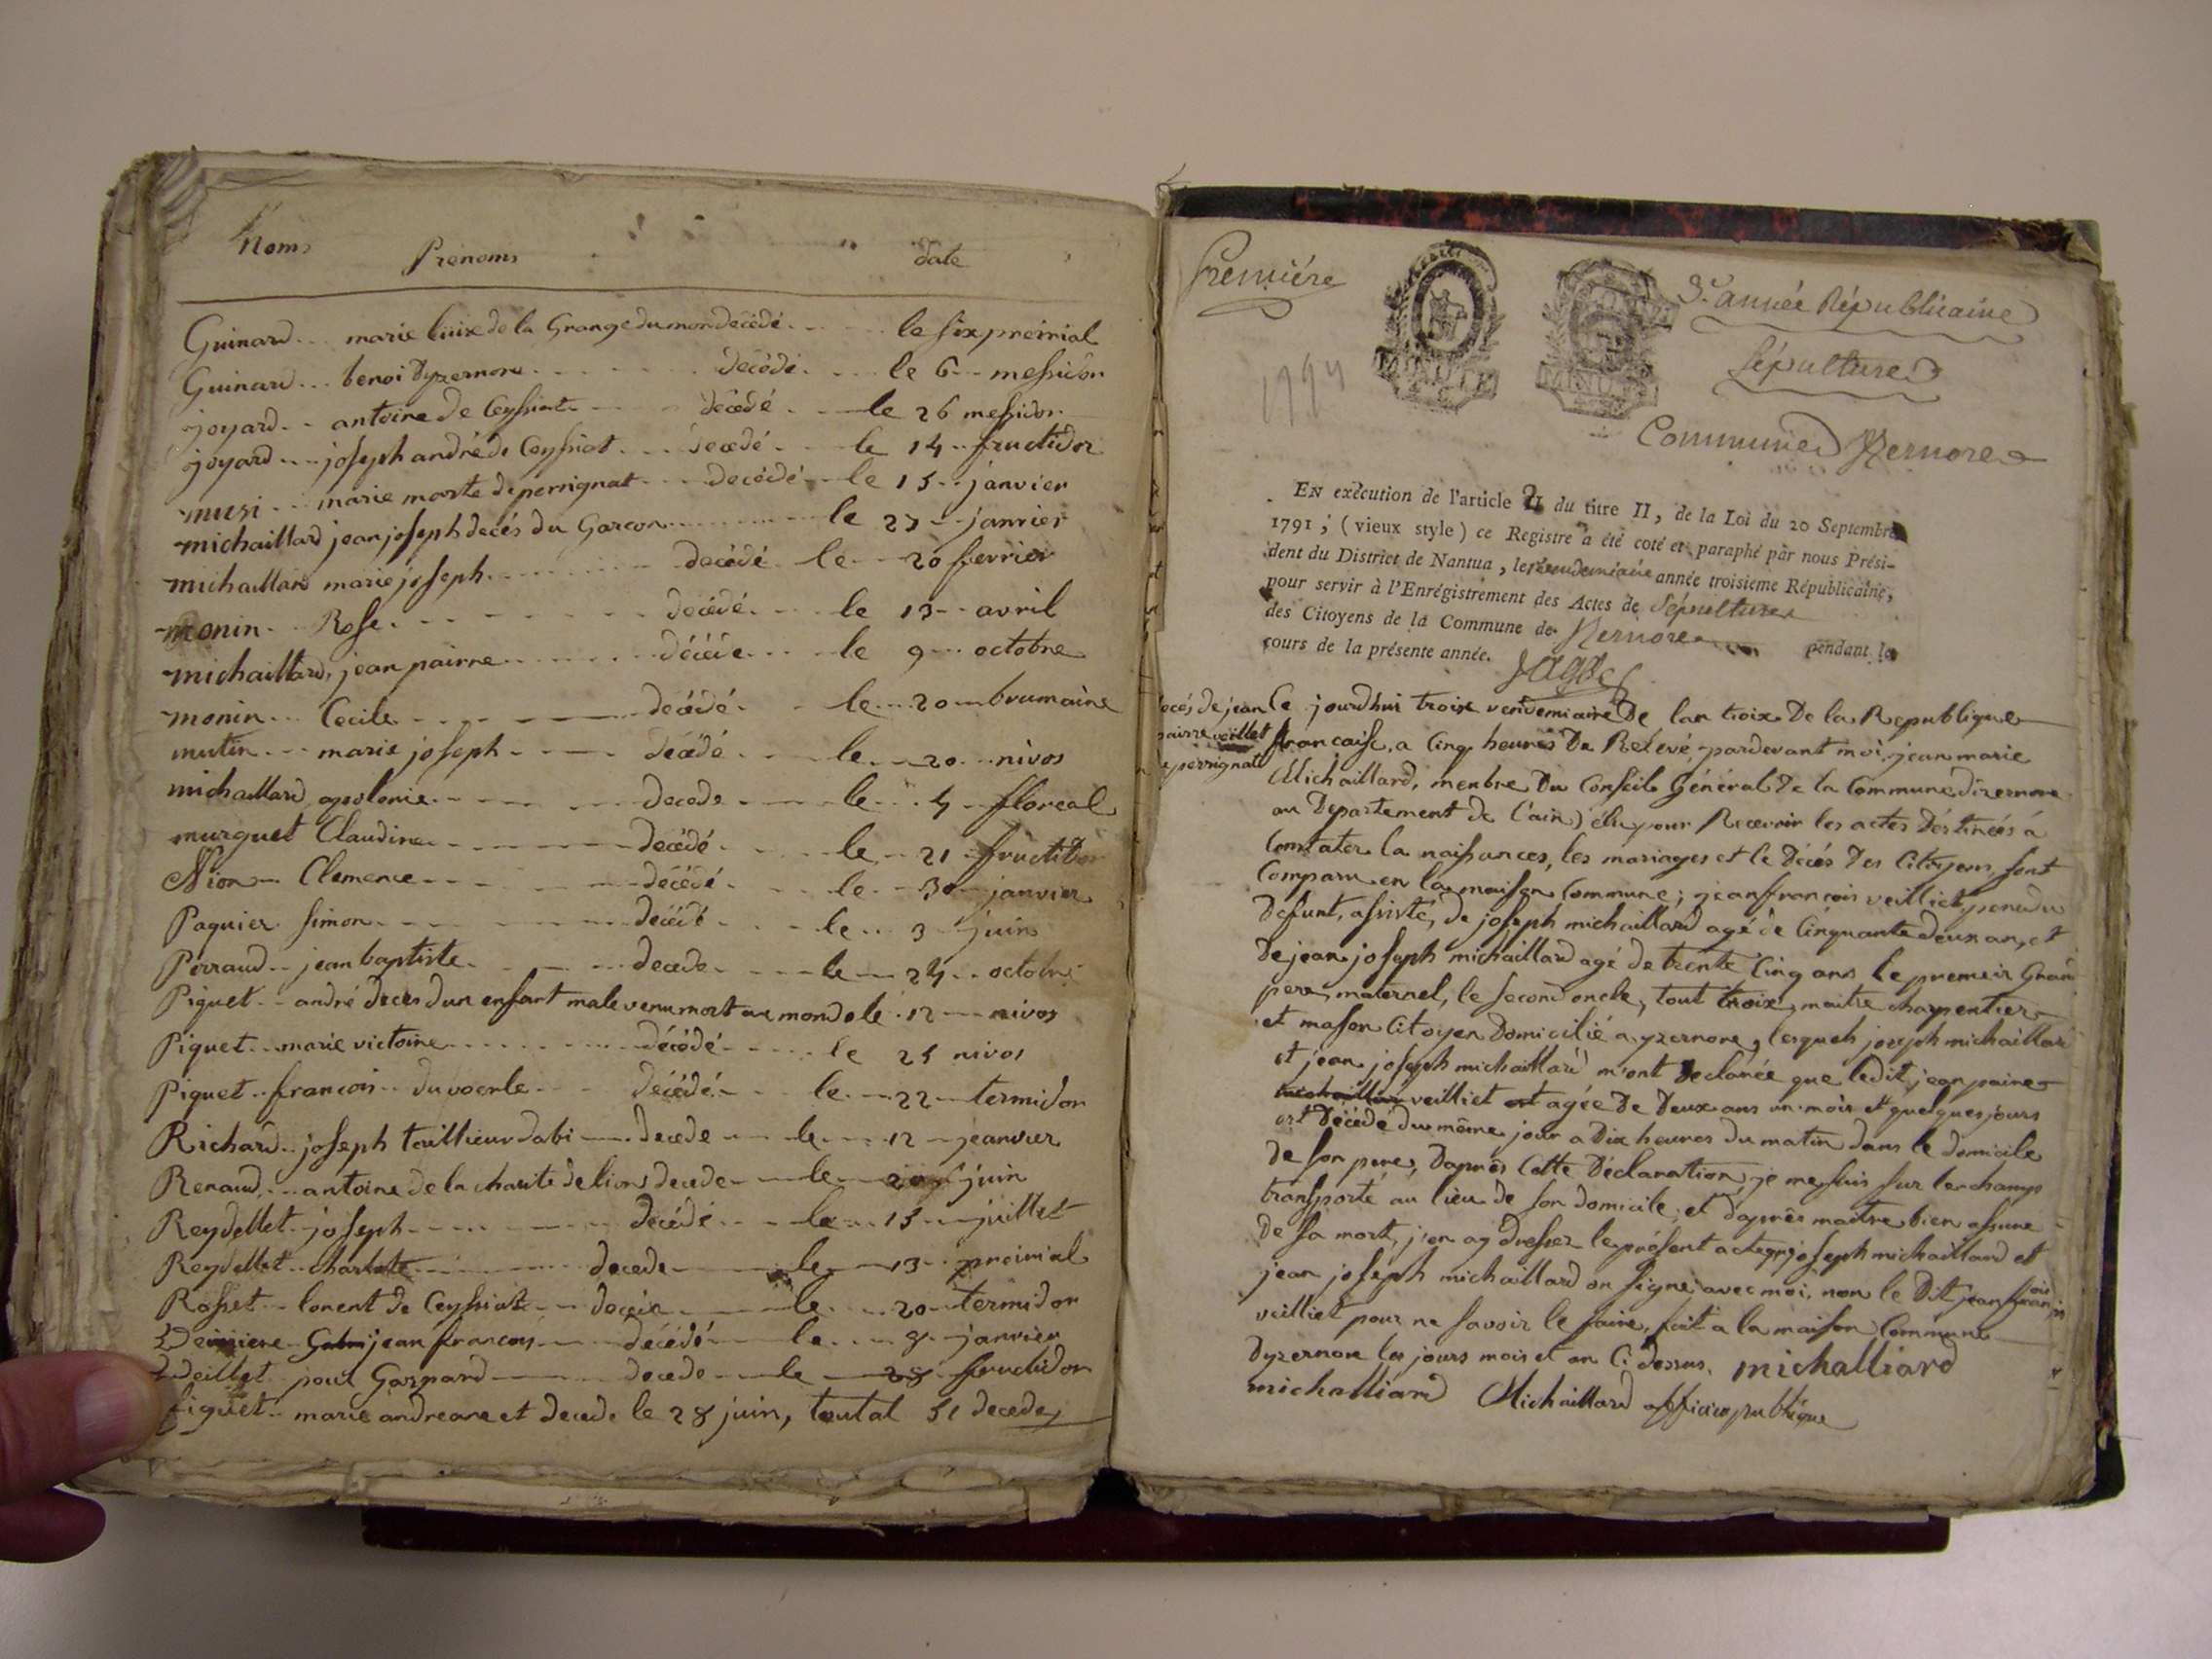 Noms Prenoms date
Guinard marie de la Grange du mon decédé le six preirial
Guinard benoi Dyzernore decédé le 6 messidor
joyard antoine de Ceyssiat decédé le 26 messidor
joyard joseph andré de Ceyssiat decedé le 14 fructidor
musi marie marte de perrignat decédé le 15 janvier
michaillard jean joseph decés du Garcon le 27 janvier
michaillard marie joseph decédé le 20 fevrier
monin Rose decédé le 13 avril
michaillard jean pairre décéde le 9 octobre
monin Cecile decédé le 20 brumaire
mutin marie joseph decédé le 20 nivos
michaillard apolonie decede le 4 floreal
murguet Claudine decédé le 21 fructidor
Nion Clemence décédé le 30 janvier
Paquier simon décédé le 3 juin
Perraud jean baptiste decede le 24 octobre
Piquet andré deces dun enfant male venu mort au monde le 12 nivos
Piquet marie victoire décédé le 25 nivos
Piquet francois du voerle décédé le 22 termidor
Richard joseph taillieur dabi decede le 12 jeanvier
Renaud antoine de la charite de lion decede le juin
Reydellet joseph decédé le 15 juillet
Reydellet charlote decede le 13 preirial
Rosset lorent de Ceyssiat le 20 termidor
jean francois décédé le 8 janvier
Veillet paul Gaspard decede le 28 fructidor
Piquet marie andreane et decede le 28 juin, toutal 51 decede
Premiére
MINUTE
MINUTE
3.e année Républicaine
Sépultures
1794
Commune d'Yzernore
EN exécution de l'article 2 du titre II, de la Loi du 20 Septembre
1791; (vieux style) ce Registre a été coté et paraphé par nous Prési-
dent du District de Nantua, le vendemiaire année troisieme Républicaine,
pour servir à l'Enrégistrement des Actes de Sépultures
des Citoyens de la Commune de pendant le
cours de la présente année.
decés de jean
pairre veillet
de perrignat
Ce jourdhui troix vendemiaire de lan troix De la Republique
francaise, a Cinq heures De Relevé pardevant moi jean marie
Michaillard, menbre Du Conseil Général De la Commune dizernore
au Departement de l'ain) élu pour Recevoir les actes déstinées á
Constater la naissances, les mariages et le Décés Des Citoyens, sont
Comparu en la maison Commune; jean francois veilliet pere du
Defunt, assisté, de joseph michaillard agé de Cinquante deux an, et
De jean joseph michaillard agé de trente Cinq ans le premeir Grand
pere, maternel, le second oncle, tout troix, maitre charpentier
et mason Citoyen Domicilié a yzernore, lesquels joseph michaillard
et jean joseph michaillard m'ont declarée que ledit jean paire
veilliet agée De Deux ans un mois et quelques jours
est Décédé du même jour a Dix heures du matin dans le domicile
de son pere, Daprés Cette Déclaration, je me suis sur le champs
transporté au lieu de son domicile, et daprés maitre bien assure
De sa mort, j'en ay Dresser le présent acte joseph michaillard et
jean joseph michaillard on signé avec moi, non le Dit jean francois
veilliet pour ne savoir le faire, fait a la maison Commune
Dyzernore les jours mois et an Ci dessus. michalliard
michalliard Michaillard officier publique